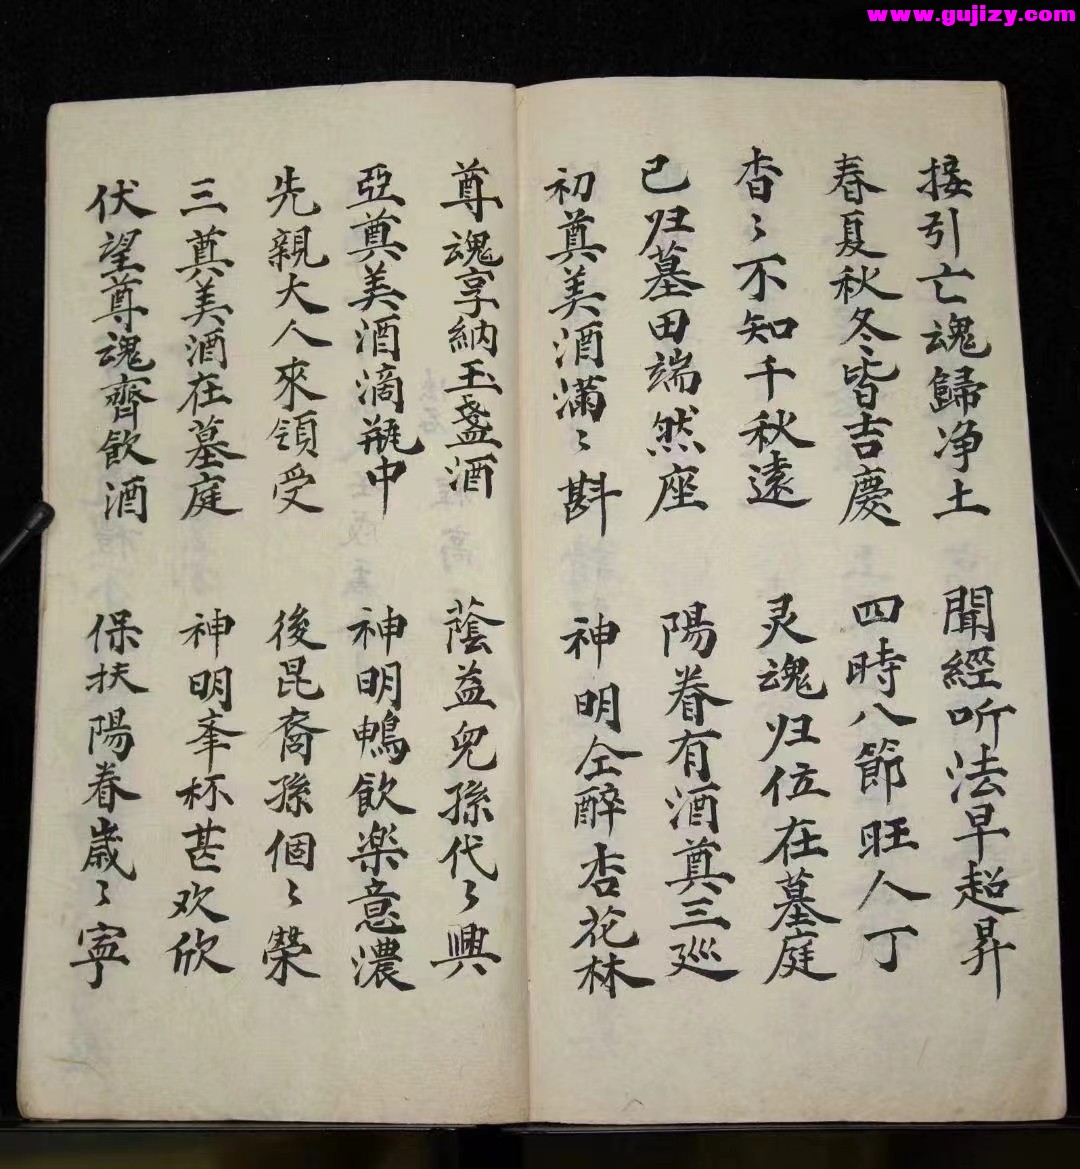 www.gujizy.com
接引亡魂歸净土 聞經听法早超昇
春夏秋冬皆吉慶 四時八節旺人丁
杳〻不知千秋遠 灵魂归位在墓庭
已归墓田端然座 陽眷有酒奠三巡
初奠美酒滿〻斟 神明仝醉杏花林
尊魂享納玉盞酒 蔭益兒孫代〻興
亞奠美酒滴瓶中 神明鴨飲楽意濃
先親大人來領受 後昆裔孫個〻榮
三奠美酒在墓庭 神明奉杯甚欢欣
伏望尊魂齊飲酒 保扶陽眷歲〻寧